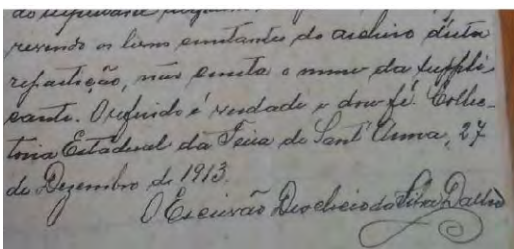 do
revendo os livros constantes do archivo d'esta
repartição, não consta o nome da suppli
cante. O referido é verdade e dou fé. Collec
toria Estadoal da Feira de Sant'Anna, 27
de Dezembro de 1913.
O Escrivão da Silva Daltro